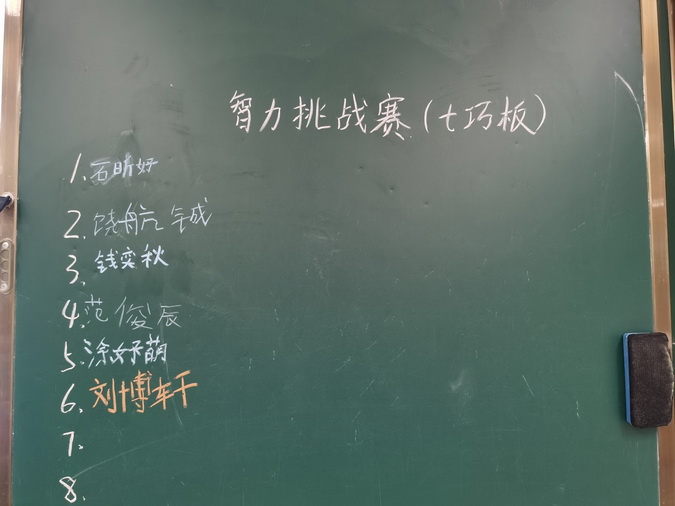 智力挑战赛(七巧板)
1. 石昕妤
2. 饶航铖
3. 钱奕秋
4. 范俊辰
5. 涂妤萌
6. 刘博轩
7.
8.